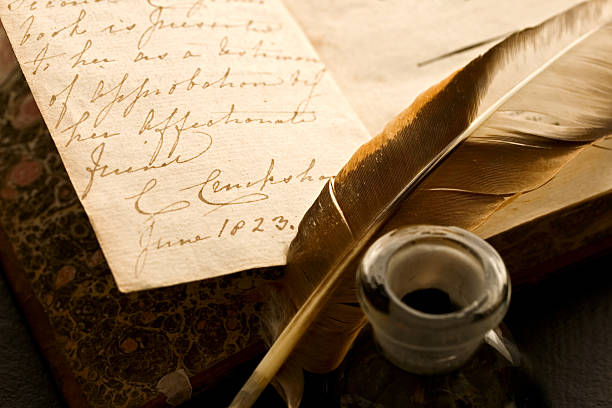 Second
book is presented
to her as a testimony
of approbation by
her affectionate
friend
C Cruiksha
June 1823.